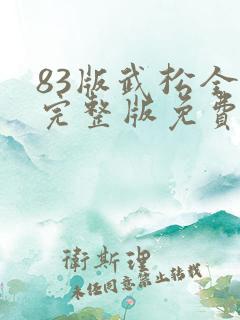 83版武松全
完整版免费
卫斯理
未经同意禁止转载